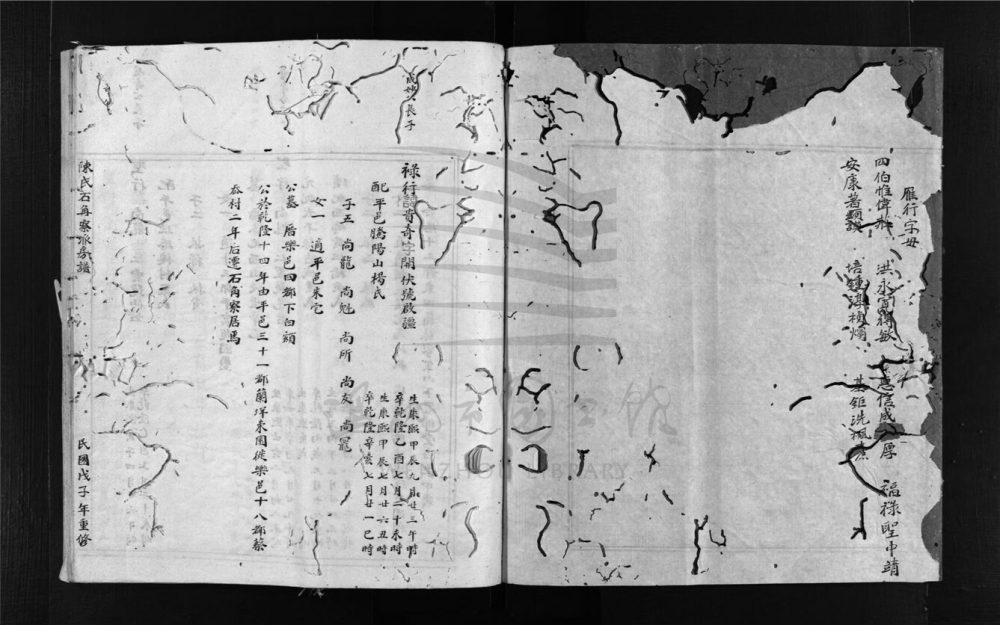 雁行字母
四伯惟偉 洪永 敏 惠信咸 厚 福祿聖中靖
安康 培鍾湛 基鉅洗
成 長子
祿行 貴奇字開伏號啟疆
生康熙甲辰九月廿三午時
卒乾隆乙酉七月二十未時
配平邑騰陽山楊氏
生康熙甲辰七月廿六丑時
卒乾隆辛亥七月廿一巳時
子五 尚龍 尚魁 尚所 尚友 尚冕
女一 適平邑朱宅
公墓 厝樂邑四都下白頭
公於乾隆十四年由平邑三十一都蘭洋東園徙樂邑十八都蔡
岙村二年后遷石角寮居焉
陳氏石角寮派房譜
民國戊子年重修
ZHOU LIBRARY